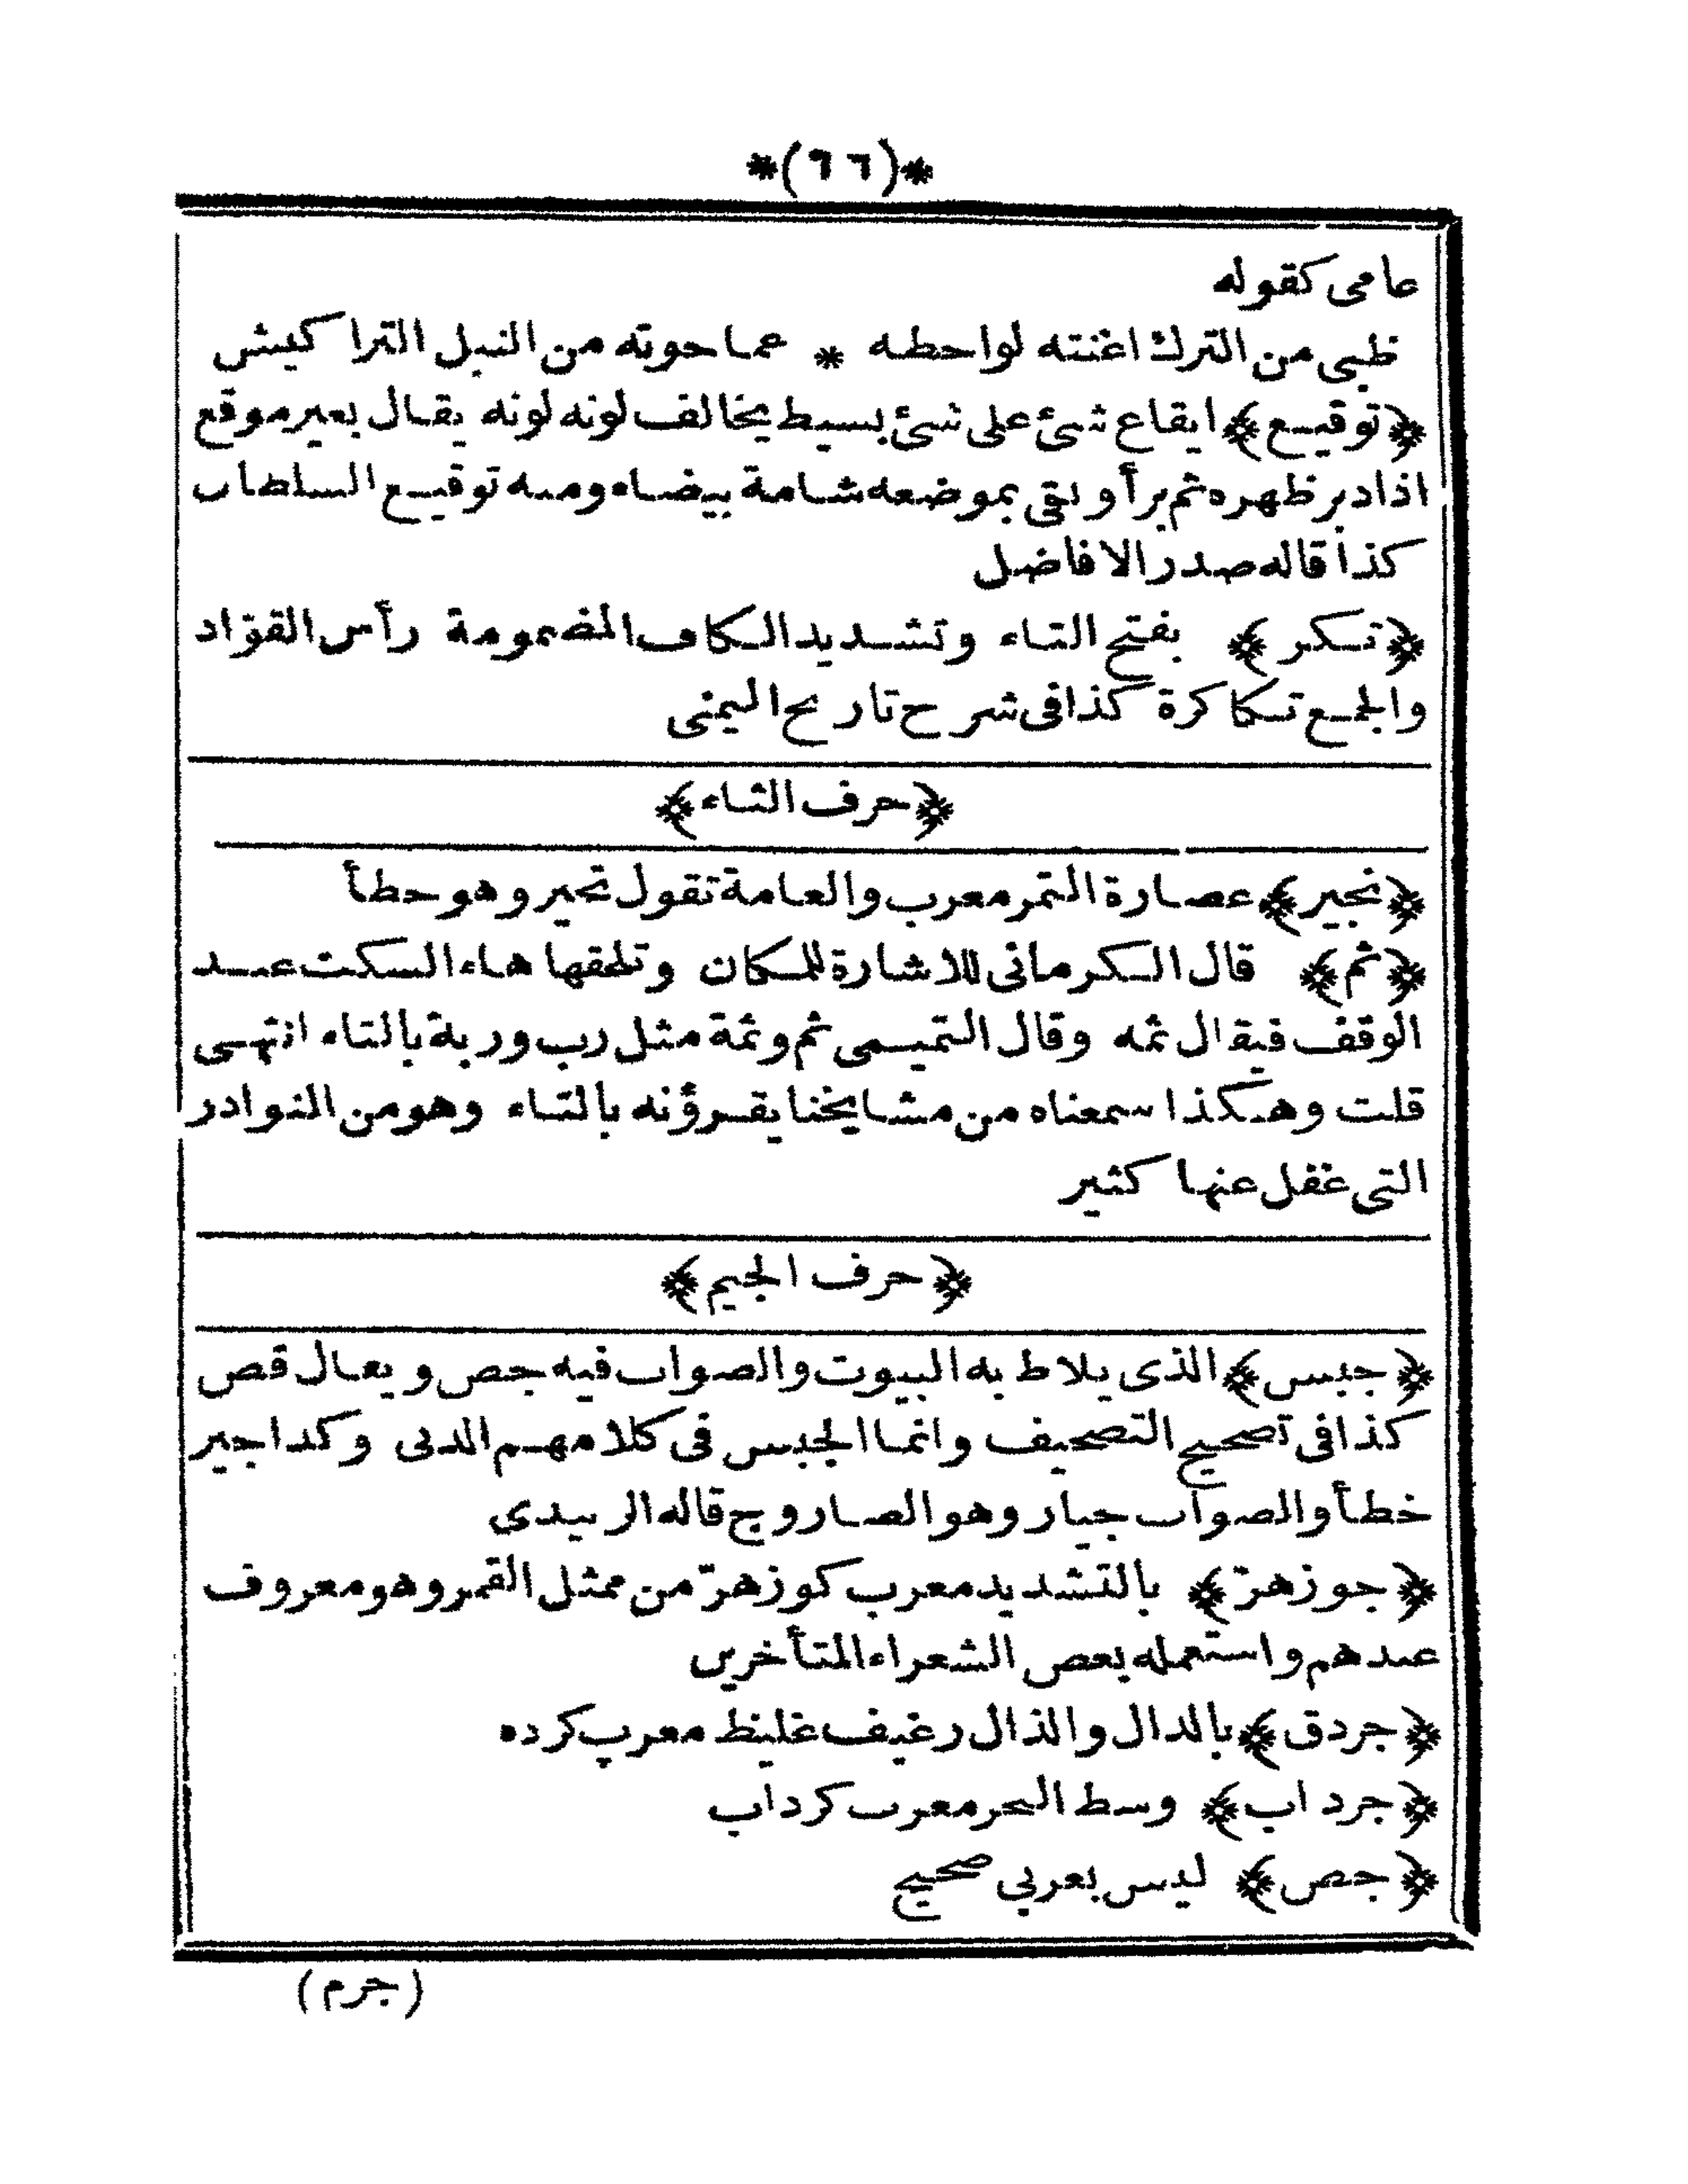 *(٦٦)*
عامى كقوله
ظبى من الترك اغنته لواحظه * عما حوته من النبل التراكيش
﴿توقيع﴾ ايقاع شئ على شئ بسيط يخالف لونه لونه يقال بعير موقع
اذا دبر ظهره ثم برأ وبقى بموضعه شامة بيضاء ومنه توقيع السلطان
كذا قاله صدر الافاضل
﴿تكر﴾ بفتح التاء وتشديد الكاف المضمومة رأس القوّاد
والجمع تكاكرة كذا فى شرح تاريخ اليمنى
﴿حرف الثاء﴾
﴿ثجير﴾ عصارة التمر معرب والعامة تقول تجير وهو خطأ
﴿ثم﴾ قال الكرمانى للاشارة للمكان وتلحقها هاء السكت عند
الوقف فيقال ثمه وقال التميمى ثم وثمة مثل رب وربة بالتاء انتهى
قلت وهكذا سمعناه من مشايخنا يقرؤنه بالتاء وهو من النوادر
التى غفل عنها كثير
﴿حرف الجيم﴾
﴿جبس﴾ الذى يلاط به البيوت والصواب فيه جص ويقال قص
كذا فى تصحيح التصحيف وانما الجبس فى كلامهم الدنى وكذا جير
خطأ والصواب جيار وهو الصاروج قاله الزبيدى
﴿جوزهرّ﴾ بالتشديد معرب كوزهرّ من ممثل القمر وهو معروف
عندهم واستعمله بعض الشعراء المتأخرين
﴿جردق﴾ بالدال والذال رغيف غليظ معرب كرده
﴿جرداب﴾ وسط البحر معرب كرداب
﴿جص﴾ ليس بعربي صحيح
(جرم)